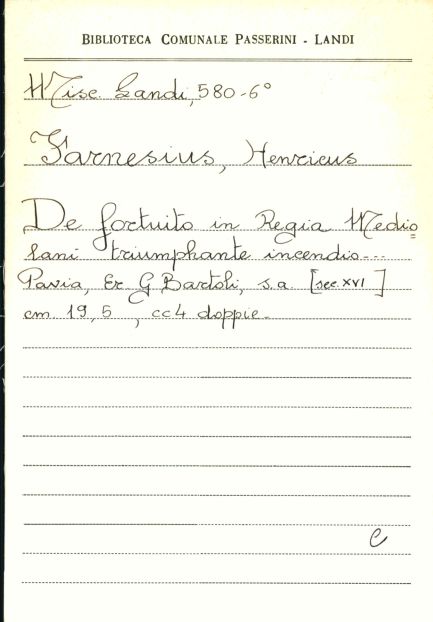 BIBLIOTECA COMUNALE PASSERINI - LANDI
Misc. Landi, 580-6°
Farnesius, Henricus
De fortuito in Regia Medio=
lani triumphante incendio...
Pavia, Er. G. Bartoli, s.a. [sec. XVI]
cm 19,5, cc4 doppie.
C